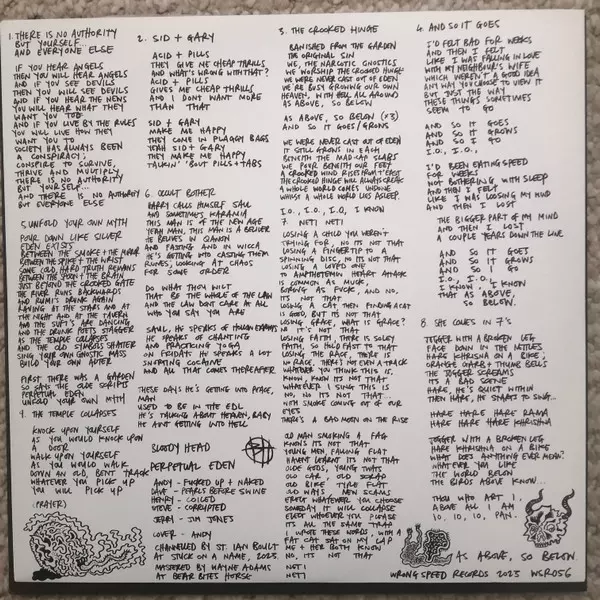 1. THERE IS NO AUTHORITY
BUT YOURSELF...
AND EVERYONE ELSE
IF YOU HEAR ANGELS
THEN YOU WILL HEAR ANGELS
AND IF YOU SEE DEVILS
THEN YOU WILL SEE DEVILS
AND IF YOU HEAR THE NEWS
YOU WILL HEAR WHAT THEY
WANT YOU TOO
AND IF YOU LIVE BY THE RULES
YOU WILL LIVE HOW THEY
WANT YOU TO
SOCIETY HAS ALWAYS BEEN
A CONSPIRACY,
CONSPIRE TO SURVIVE,
THRIVE AND MULTIPLY
THERE IS NO AUTHORITY
BUT YOURSELF...
AND THERE IS NO AUTHORITY
BUT EVERYONE ELSE
5. UNFOLD YOUR OWN MYTH
POUR DOWN LIKE SILVER
EDEN EXISTS
BETWEEN THE SMOKE + THE MIRROR
BETWEEN THE VEIN + THE WRIST
SOME OLD HARD TRUTH REMAINS
BETWEEN THE SPOON + THE BRAIN
JUST BEYOND THE CROOKED GATE
THE RIVER RUNS BACKWARDS
AND RUMI'S DRUNK AGAIN
RAVING AT THE STARS AND AT
THE NIGHT AND AT THE TAVERN
AND THE SUFI'S ARE DANCING
AND THE DRUNK POETS STAGGER
AS THE TEMPLE COLLAPSES
AND THE OLD SYMBOLS SHATTER
SING YOUR OWN GNOSTIC MASS
BUILD YOUR OWN ALTER
FIRST THERE WAS A GARDEN
SO SAYS THE OLDE SCRIPTS
PERPETUAL EDEN
UNFOLD YOUR OWN MYTH
9. THE TEMPLE COLLAPSES
KNOCK UPON YOURSELF
AS YOU WOULD KNOCK UPON
A DOOR
WALK UPON YOURSELF
AS YOU WOULD WALK
DOWN AN OLD, BENT TRACK
WHATEVER YOU PICK UP
YOU WILL PICK UP
(PRAYER)
2. SID + GARY
ACID + PILLS
THEY GIVE ME CHEAP THRILLS
AND WHAT'S WRONG WITH THAT?
ACID + PILLS
GIVES ME CHEAP THRILLS
AND I DON'T WANT MORE
THAN THAT
SID + GARY
MAKE ME HAPPY
THEY COME IN PLAGGY BAGS
YEAH SID + GARY
THEY MAKE ME HAPPY
TALKIN' 'BOUT PILLS + TABS
6. OCCULT BOTHER
HARRY CALLS HIMSELF SAUL
AND SOMETIMES, KARANJIA
THIS MAN IS OF THE NEW AGE
YEAH MAN, THIS MAN IS A BELIEVER
HE BELIEVES IN
AND FASTING AND IN WICCA
HE'S GETTING INTO CASTING THEM
RUNES, LOOKING AT CHAOS
FOR SOME ORDER
DO WHAT THOU WILT
THAT BE THE WHOLE OF THE LAW
AND THE LAW DON'T CARE AT ALL
WHO YOU SAY YOU ARE
SAUL, HE SPEAKS OF
HE SPEAKS OF CHANTING
AND PRACTICING YOGA
ON FRIDAY, HE SPEAKS A LOT
SNORTING COCAINE
AND ALL THAT COMES THEREAFTER.
THESE DAYS HE'S GETTING INTO PEACE,
MAN
USED TO BE IN THE EDL
HE'S TALKING ABOUT HEAVEN, BABY
HE AIN'T GETTING INTO HELL
BLOODY HEAD
PERPETUAL EDEN
ANDY - FUCKED UP + NAKED
DAVE - PEARLS BEFORE SWINE
HENRY - COILED
STEVE - CORRUPTED
JERRY - JIM JONES
COVER - ANDY
CHANNELLED BY ST. IAN BOULT
AT STUCK ON A NAME, 2023.
MASTERED BY WAYNE ADAMS
AT BEAR BITES HORSE
3. THE CROOKED HINGE
BANISHED FROM THE GARDEN
THE ORIGINAL SIN
WE, THE NARCOTIC GNOSTICS
WE WORSHIP THE CROOKED HINGE
WE WERE NEVER CAST OUT OF EDEN
WE'RE BUSY GROWING OUR OWN
HEAVEN, WITH HELL ALL AROUND
AS ABOVE, SO BELOW
AS ABOVE, SO BELOW (x3)
AND SO IT GOES/GROWS
WE WERE NEVER CAST OUT OF EDEN
IT STILL GROWS IN EACH
BENEATH THE MAD-CAP SLABS
WE POUR BENEATH OUR FEET
A CROOKED WIND RISES FROM THE EAST
THE CROOKED HINGE WILL ALWAYS CREAK
A WHOLE WORLD COMES UNDONE
WHILST A WHOLE WORLD LIES ASLEEP.
I.O, I.O, I.O, I KNOW
7. NETI NETI
LOSING A CHILD YOU WEREN'T
TRYING FOR, NO ITS NOT THAT
LOSING A FINGERTIP TO A
SPINNING DISC, NO ITS NOT THAT
LOSING A LOVED ONE
TO HEART ATTACK
IS COMMON AS MUCK,
BORING AS FUCK, AND NO,
IT'S NOT THAT
LOSING A CAT THEN FINDING A CAT
IS GOOD, BUT ITS NOT THAT
LOSING GRACE, WHAT IS GRACE?
NO IT'S NOT THAT
LOSING FAITH, THERE IS SOLEY
FAITH, SO HOLD FAST TO THAT
LOSING THE RACE, THERE IS
NO RACE, THERE'S NOT EVEN A TRACK
WHATEVER YOU THINK THIS IS,
KNOW, KNOW ITS NOT THAT
WHATEVER I SING THIS IS
NO, NO ITS NOT THAT...
WITH SMOKE COMING OUT OF OUR
EYES
THERE'S A BAD MOON ON THE RISE
OLD MAN SMOKING A FAG
KNOWS ITS NOT THAT
YOUNG MEN FALLING FLAT
HAVEN'T LEARNT ITS NOT THAT
OLDE GODS, YOUNG TWATS
OLD CAR, OLD SCRAP
OLD BIKE TYRE FLAT
OLD WAYS, NEW SCAMS
ERECT WHATEVER YOU CHOOSE
SOMEDAY, IT WILL COLLAPSE
ERECT WHOEVER YOU PLEASE
ITS ALL THE SAME TRAP
I WROTE THESE WORDS, WITH A
FAT CAT SAT ON MY LAP
ME + HER BOTH KNOW
NO, IT'S NOT THAT
NETI
NETI
4. AND SO IT GOES
I'D FELT BAD FOR WEEKS
AND THEN I FELT
LIKE I WAS FALLING IN LOVE
WITH MY NEIGHBOUR'S WIFE
WHICH WEREN'T A GOOD IDEA
ANY WAY YOU CHOOSE TO VIEW IT
BUT JUST THE WAY
THESE THINGS SOMETIMES
SEEM TO GO
AND SO IT GOES
AND SO IT GROWS
AND SO I GO
I.O., I.O.,
I'D BEEN EATING SPEED
FOR WEEKS
NOT BOTHERING WITH SLEEP
AND THEN I FELT
LIKE I WAS LOSING MY MIND
AND THEN I LOST
THE BIGGER PART OF MY MIND
AND THEN I LOST
A COUPLE YEARS DOWN THE LINE
AND SO IT GOES
AND SO IT GROWS
AND SO I GO
I.O., I.O.,
I KNOW, I KNOW
THAT AS ABOVE,
SO BELOW.
8. SHE COMES IN 7'S
JOGGER WITH A BROKEN LEG
FACE DOWN IN THE NETTLES
HARE KHRISHNA ON A BIKE,
ORANGE GARB + THUMB BELLS
THE JOGGER SCREAMS
ITS A BAD SCENE
HARE, HE'S QUIET WITHIN
THEN HARE, HE STARTS TO SING...
HARE HARE HARE RAMA
HARE HARE HARE KHRISHNA
JOGGER WITH A BROKEN LEG
HARE KHRISHNA ON A BIKE
WHAT DOES ANYTHING EVER MEAN?
WHATEVER YOU LIKE
THE WORLD BELOW
THE BIRDS ABOVE KNOW...
THOU WHO ART I,
ABOVE ALL I AM
IO, IO, IO, PAN.
AS ABOVE, SO BELOW
WRONG SPEED RECORDS 2023 WSR056